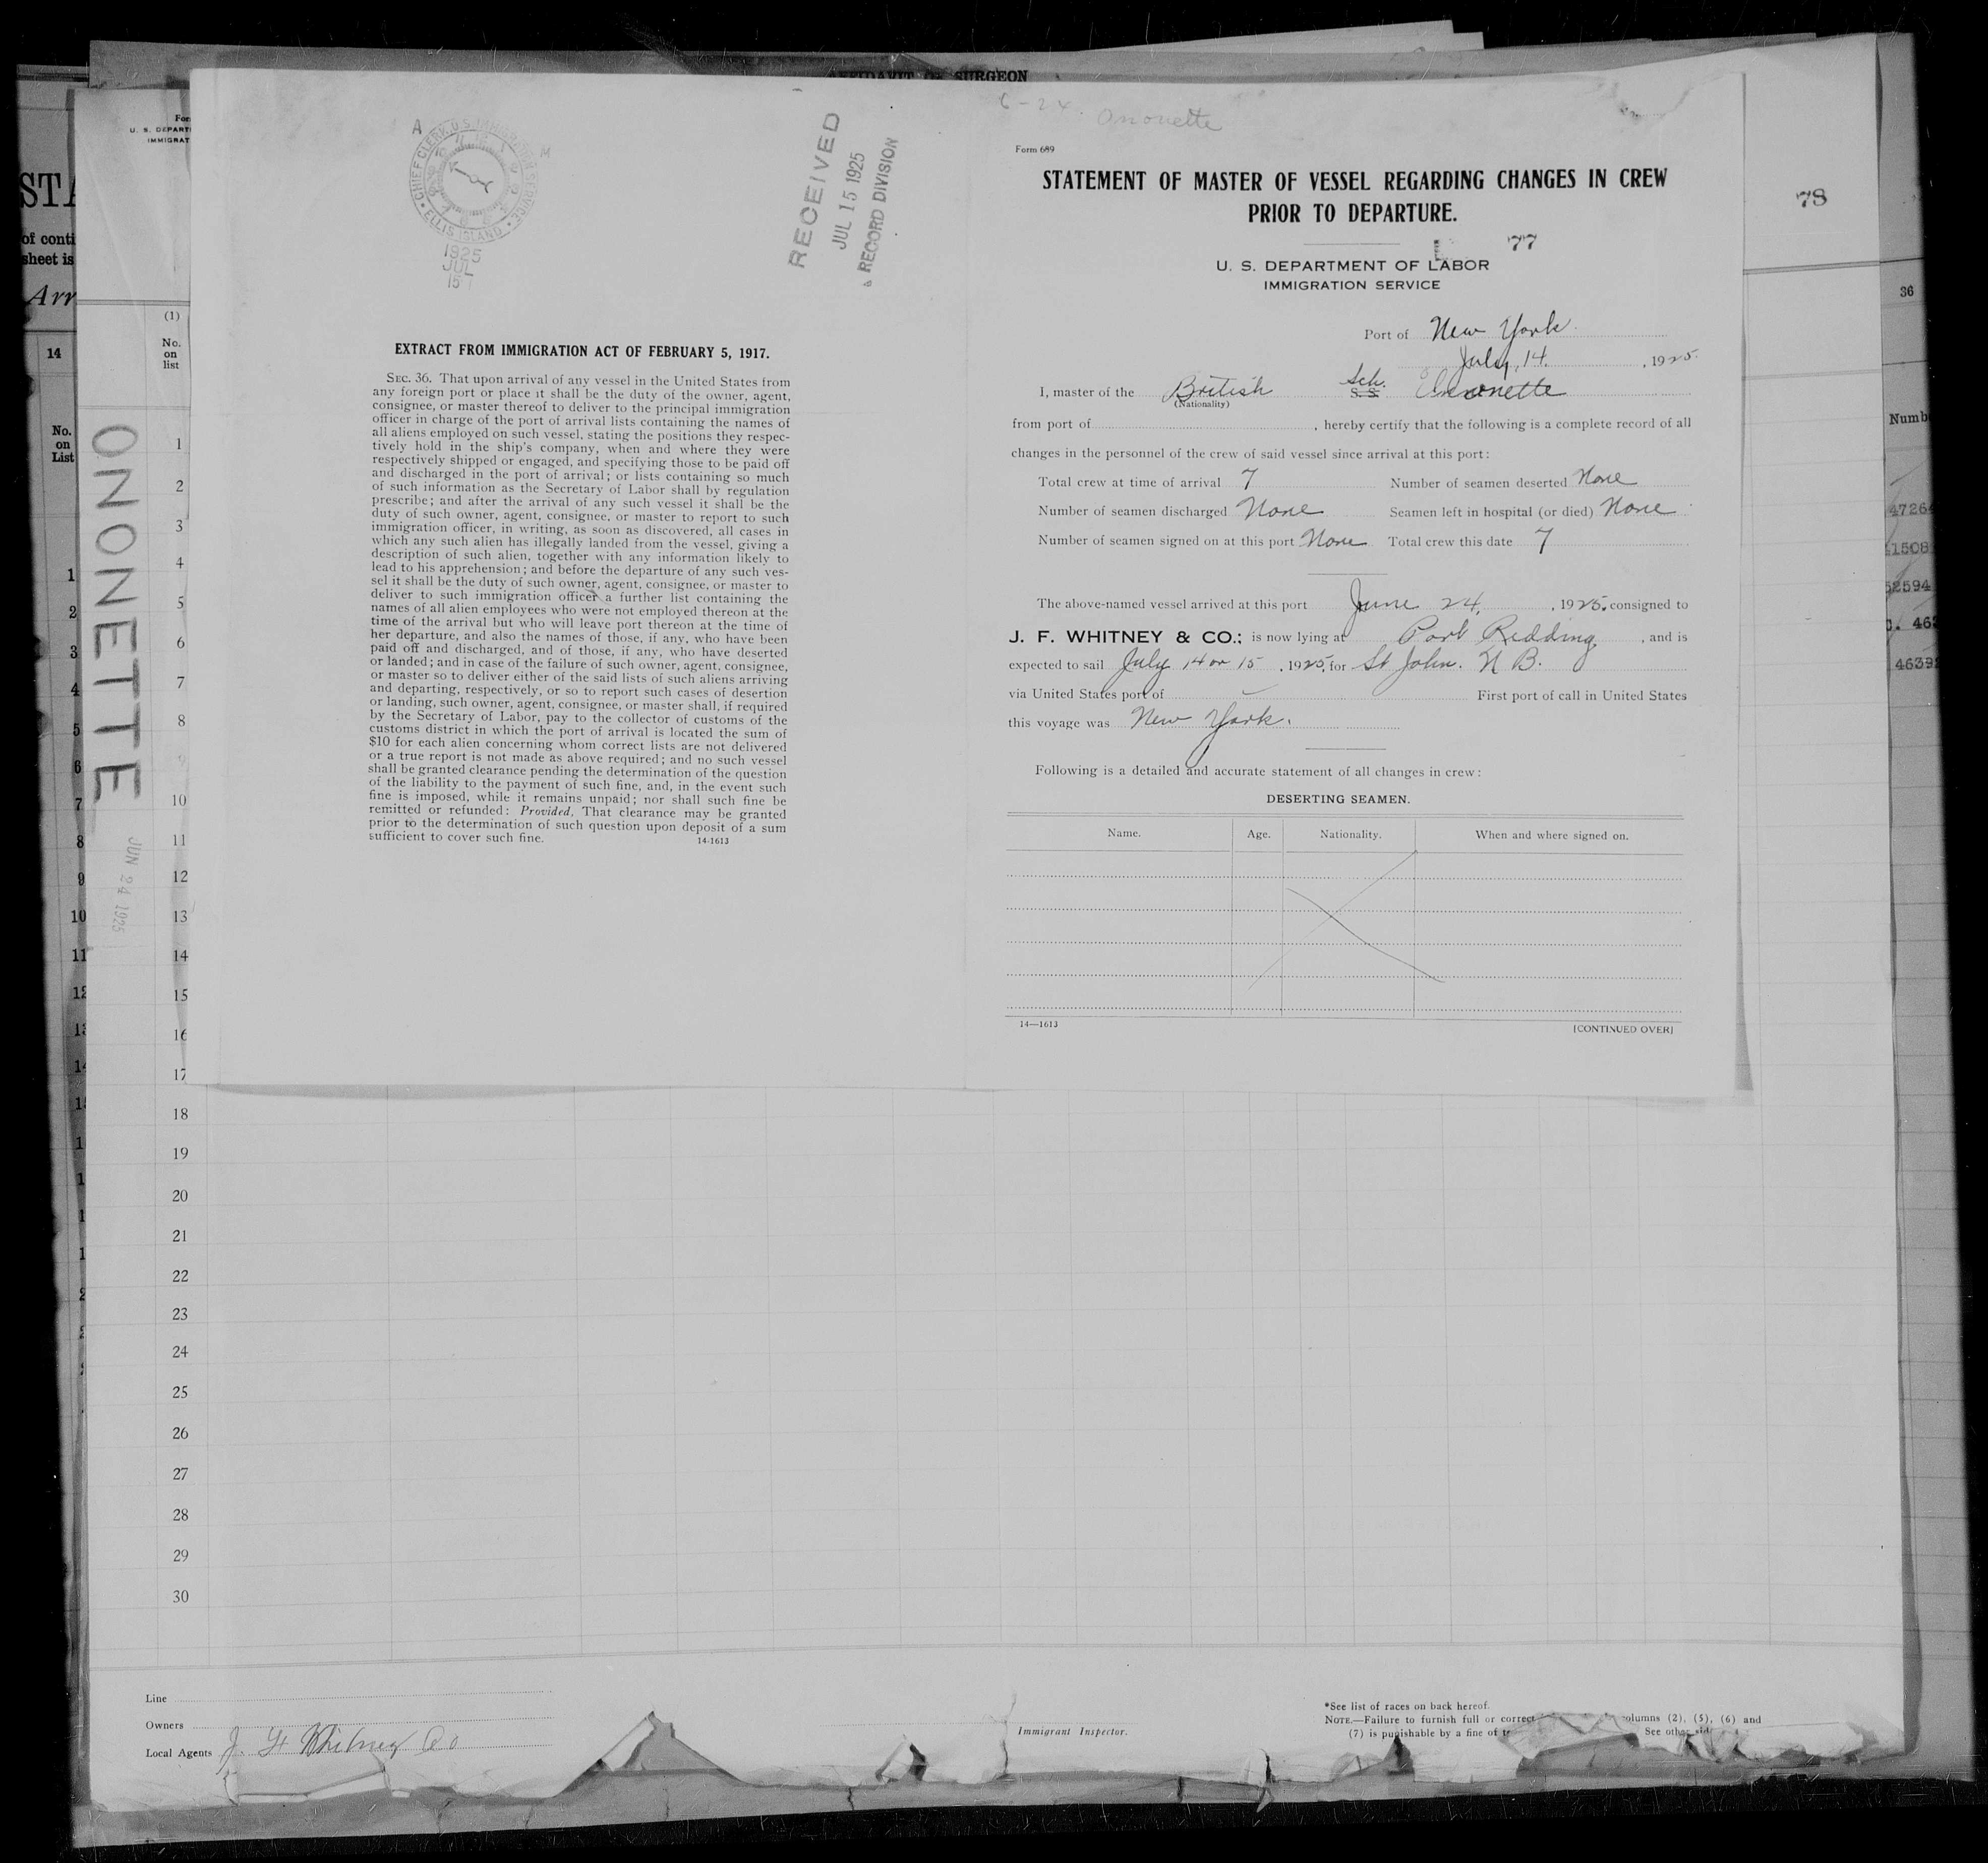 AFFIDAVIT OF SURGEON
STA
of conti
sheet is
Arr
14
No.
on
List
U. S. DEPART
IMMIGRAT
(1)
No.
on
list
ONONETTE
JUN 24 1925
A
CHIEF CLERK, U.S. IMMIGRATION SERVICE
ELLIS ISLAND
M
1925
JUL
15
RECEIVED
JUL 15 1925
RECORD DIVISION
EXTRACT FROM IMMIGRATION ACT OF FEBRUARY 5, 1917.
SEC. 36. That upon arrival of any vessel in the United States from
any foreign port or place it shall be the duty of the owner, agent,
consignee, or master thereof to deliver to the principal immigration
officer in charge of the port of arrival lists containing the names of
all aliens employed on such vessel, stating the positions they respec-
tively hold in the ship's company, when and where they were
respectively shipped or engaged, and specifying those to be paid off
and discharged in the port of arrival; or lists containing so much
of such information as the Secretary of Labor shall by regulation
prescribe; and after the arrival of any such vessel it shall be the
duty of such owner, agent, consignee, or master to report to such
immigration officer, in writing, as soon as discovered, all cases in
which any such alien has illegally landed from the vessel, giving a
description of such alien, together with any information likely to
lead to his apprehension; and before the departure of any such ves-
sel it shall be the duty of such owner, agent, consignee, or master to
deliver to such immigration officer a further list containing the
names of all alien employees who were not employed thereon at the
time of the arrival but who will leave port thereon at the time of
her departure, and also the names of those, if any, who have been
paid off and discharged, and of those, if any, who have deserted
or landed; and in case of the failure of such owner, agent, consignee,
or master so to deliver either of the said lists of such aliens arriving
and departing, respectively, or so to report such cases of desertion
or landing, such owner, agent, consignee, or master shall, if required
by the Secretary of Labor, pay to the collector of customs of the
customs district in which the port of arrival is located the sum of
$10 for each alien concerning whom correct lists are not delivered
or a true report is not made as above required; and no such vessel
shall be granted clearance pending the determination of the question
of the liability to the payment of such fine, and, in the event such
fine is imposed, while it remains unpaid; nor shall such fine be
remitted or refunded: Provided, That clearance may be granted
prior to the determination of such question upon deposit of a sum
sufficient to cover such fine. 14-1613
6-24. Ononette
Form 689
STATEMENT OF MASTER OF VESSEL REGARDING CHANGES IN CREW
PRIOR TO DEPARTURE.
L 77
U. S. DEPARTMENT OF LABOR
IMMIGRATION SERVICE
Port of New York
July 14, 1925.
I, master of the British Sch. S. S. Ononette
(Nationality)
from port of , hereby certify that the following is a complete record of all
changes in the personnel of the crew of said vessel since arrival at this port:
Total crew at time of arrival 7 Number of seamen deserted None
Number of seamen discharged None Seamen left in hospital (or died) None
Number of seamen signed on at this port None Total crew this date 7
The above-named vessel arrived at this port June 24, 1925, consigned to
J. F. WHITNEY & CO.; is now lying at Port Redding, and is
expected to sail July 14 or 15, 1925, for St John. N B.
via United States port of First port of call in United States
this voyage was New York.
Following is a detailed and accurate statement of all changes in crew:
DESERTING SEAMEN.
Name. Age. Nationality. When and where signed on.
14—1613 [CONTINUED OVER]
78
36
Numb
4726
1508
52594
. 46
4639
1
2
3
4
5
6
7
8
10
11
12
13
14
15
16
17
18
19
20
21
22
23
24
25
26
27
28
29
30
1
2
3
4
5
6
7
8
9
10
11
Line
Owners
Local Agents J. F Whitney Co
Immigrant Inspector.
*See list of races on back hereof.
NOTE.—Failure to furnish full or correct columns (2), (5), (6) and
(7) is punishable by a fine of See other